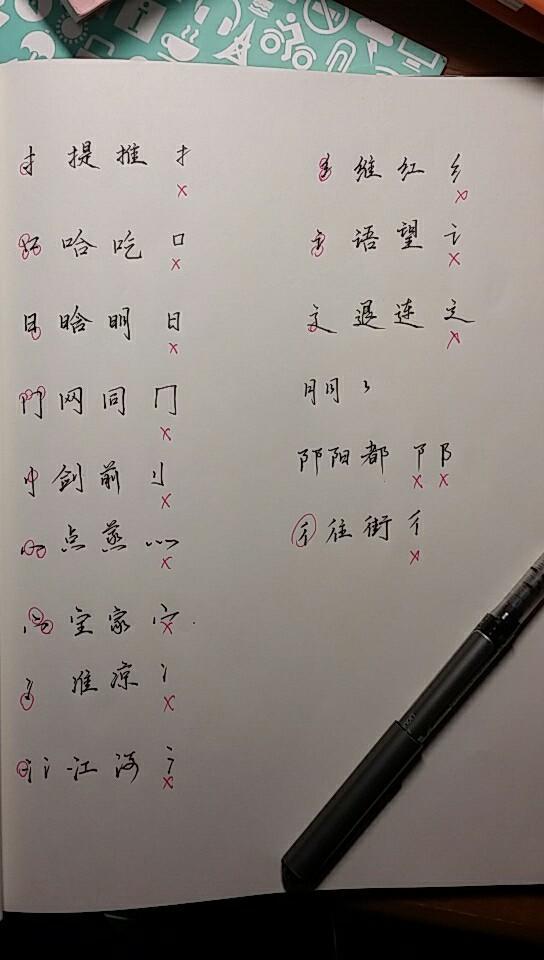 扌 提 推 扌
口 哈 吃 口
日 晗 明 日
门 网 同 冂
刂 剑 前 刂
灬 点 蒸 灬
宀 室 家 宀
冫 准 凉 冫
氵 氵 江 海 氵
纟 维 红 纟
讠 语 望 讠
辶 退 连 辶
阝 阝 阳 都 阝 阝
彳 往 街 彳